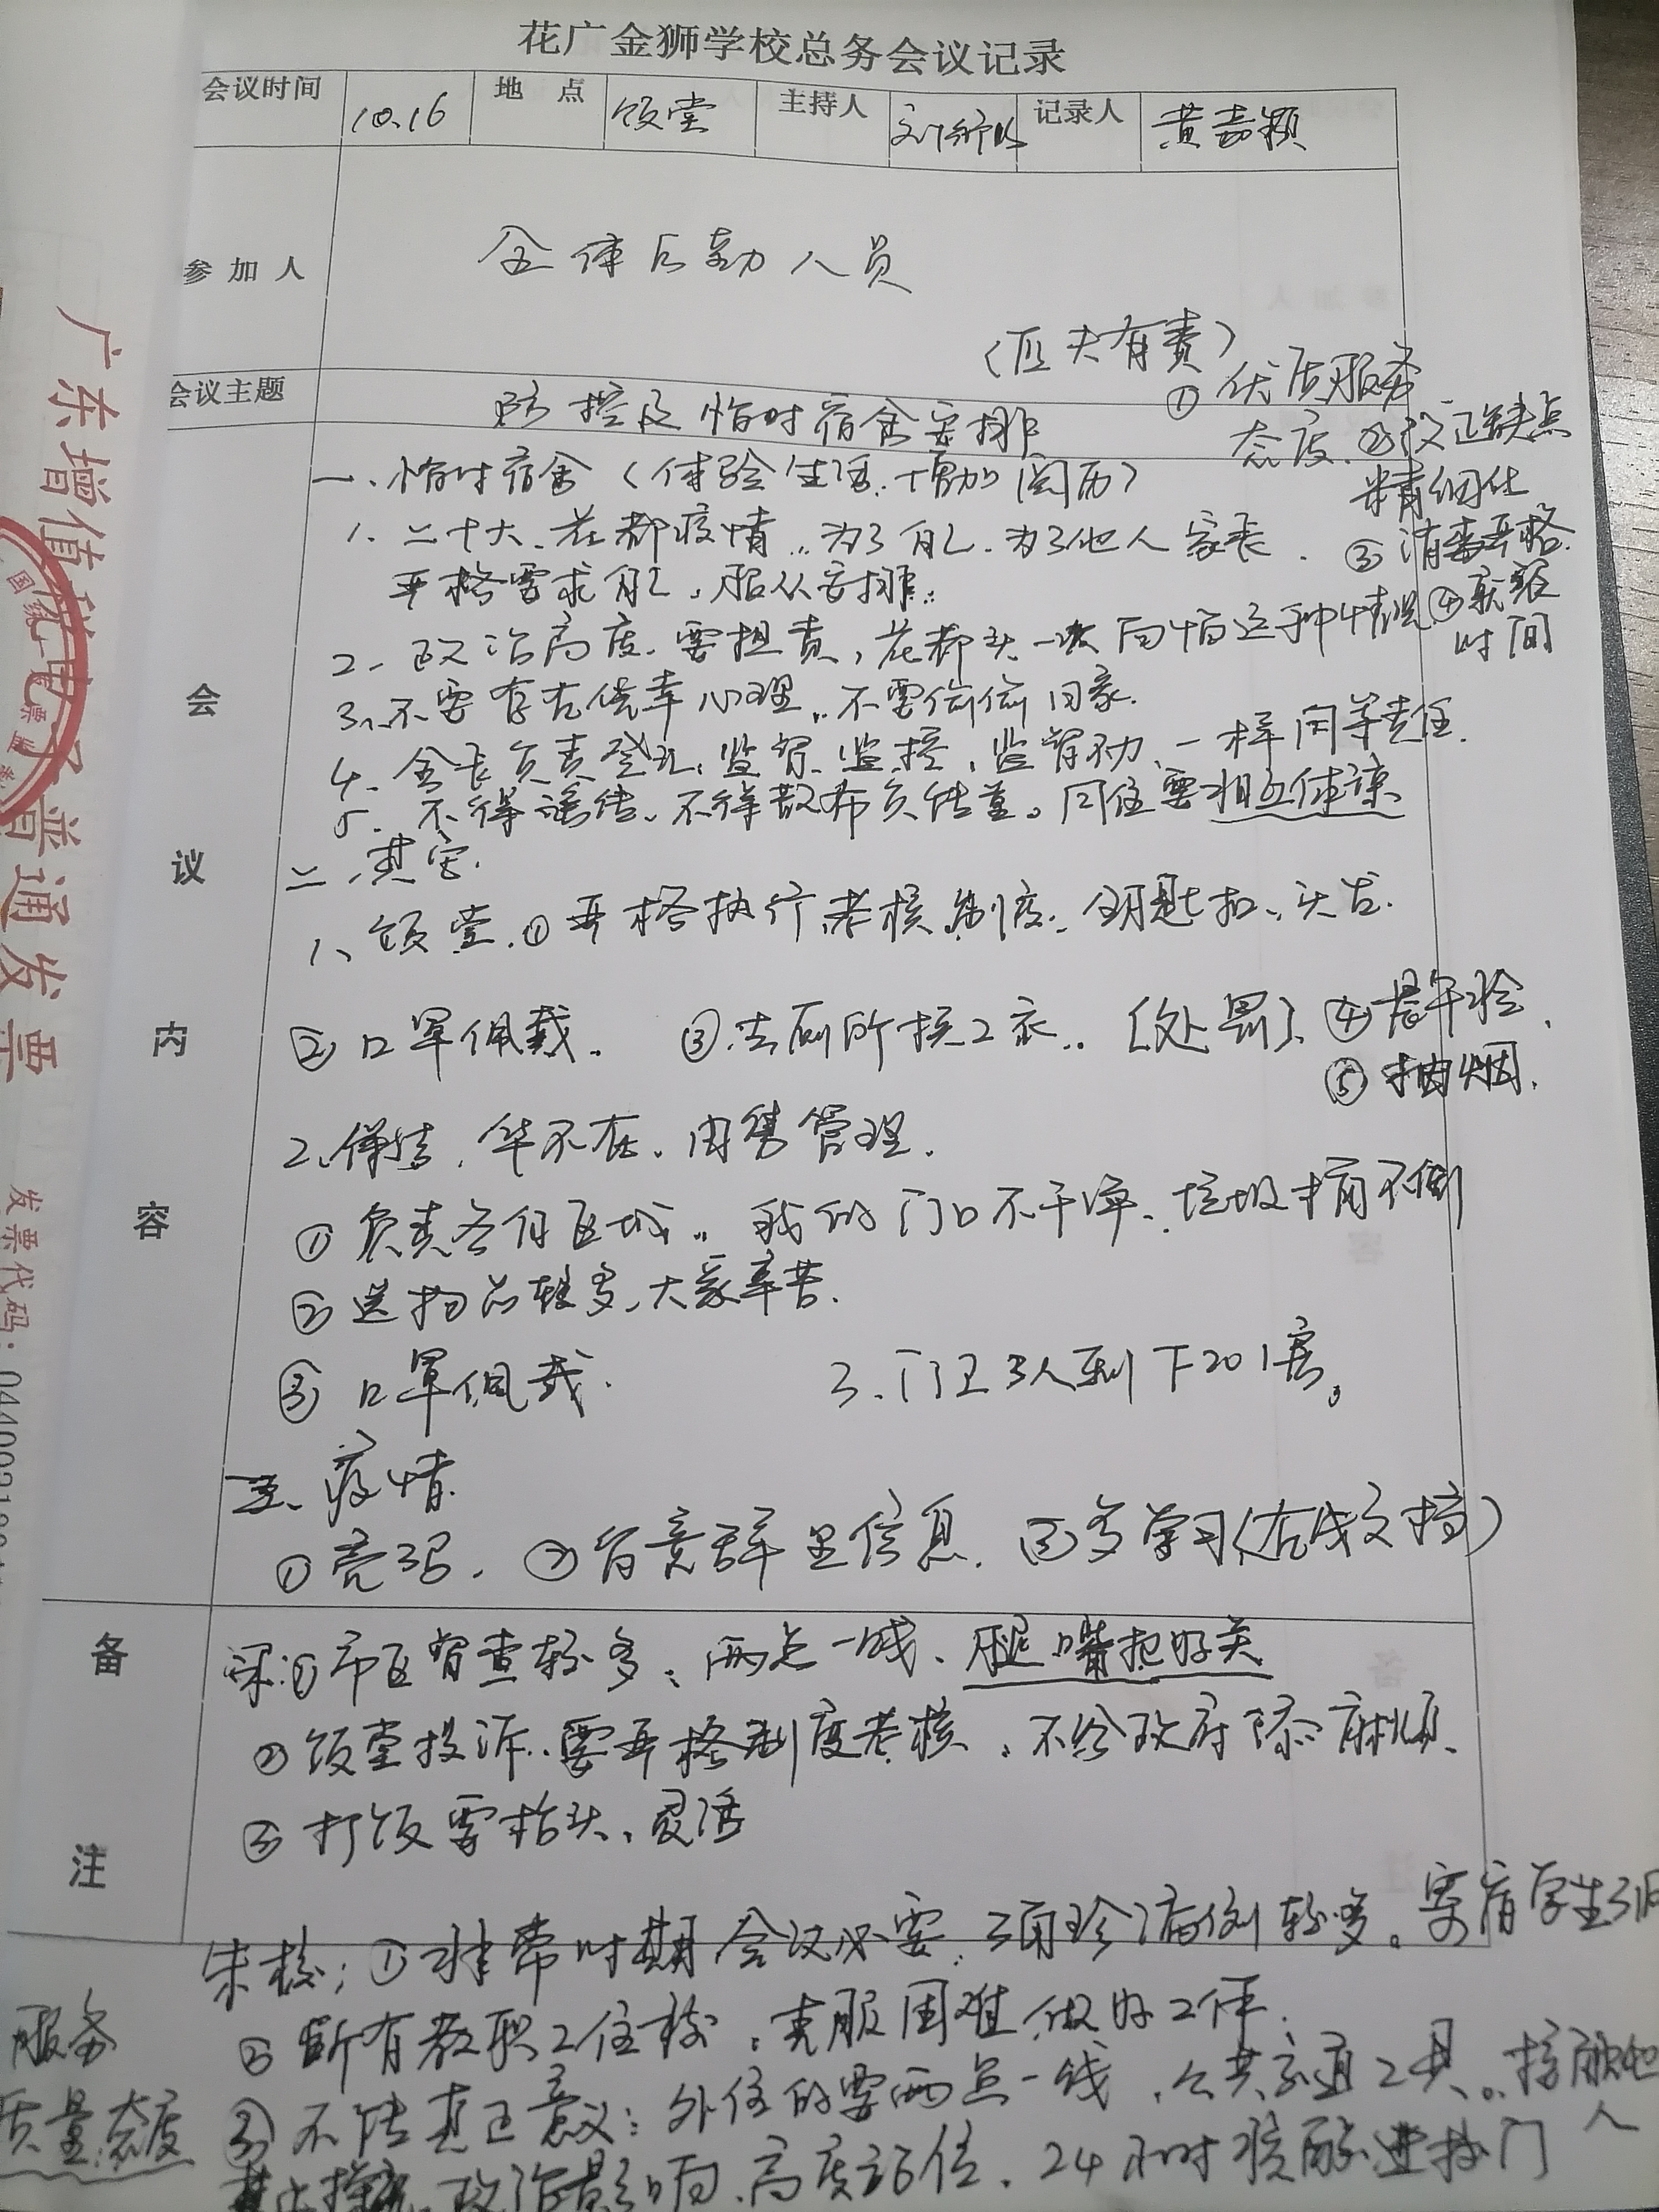 花广金狮学校总务会议记录
会议时间 10.16 地 点 饭堂 主持人 记录人 黄嘉颖
参加人 全体后勤人员
(匹夫有责)
会议主题 防控及临时宿舍安排
①优质服务
态度.②改正缺点
精细化
③消毒严格.
④就寝
时间
会议内容
一、临时宿舍(体验生活.增加阅历)
1.二十大、花都疫情,,为了自己.为了他人家长.
严格要求自己,服从安排.
2.政治高度.要担责,花都头一次面临这种情况
3、不要存在侥幸心理,,不要偷偷回家.
4.舍长负责登记,监督、监控,监督不力、一样同等责任.
5.不得谣传、不得散布负能量。同住要相互体谅
二、其它.
1、饭堂.①严格执行考核制度.钥匙扣、头发.
②口罩佩戴. ③去厕所换工衣..(处罚)、④晨午检.
⑤抽烟.
2、保洁.华不在.由隽管理.
①负责各自区域..我的门口不干净、垃圾桶不倒
②送物品较多、大家辛苦.
③口罩佩戴. 3.门卫3人到下201房。
三、疫情
①亮码. ②留意群里信息. ③多学习(在线文档)
备注
梁:①市区督查较多、两点一线、腿嘴把好关
②饭堂投诉..要严格制度考核.不给政府添麻烦.
③打饭要抬头、灵活
朱校:①非常时期会议必要.确诊病例较多。寄宿学生
②所有教职工住校,克服困难,做好工作.
③不住真正意义:外住的要两点一线,公共交通工具..接触他人
政治影响.高度站位.24小时核酸进校门
服务
质量.态度
广东增值税电子普通发票
发票代码: